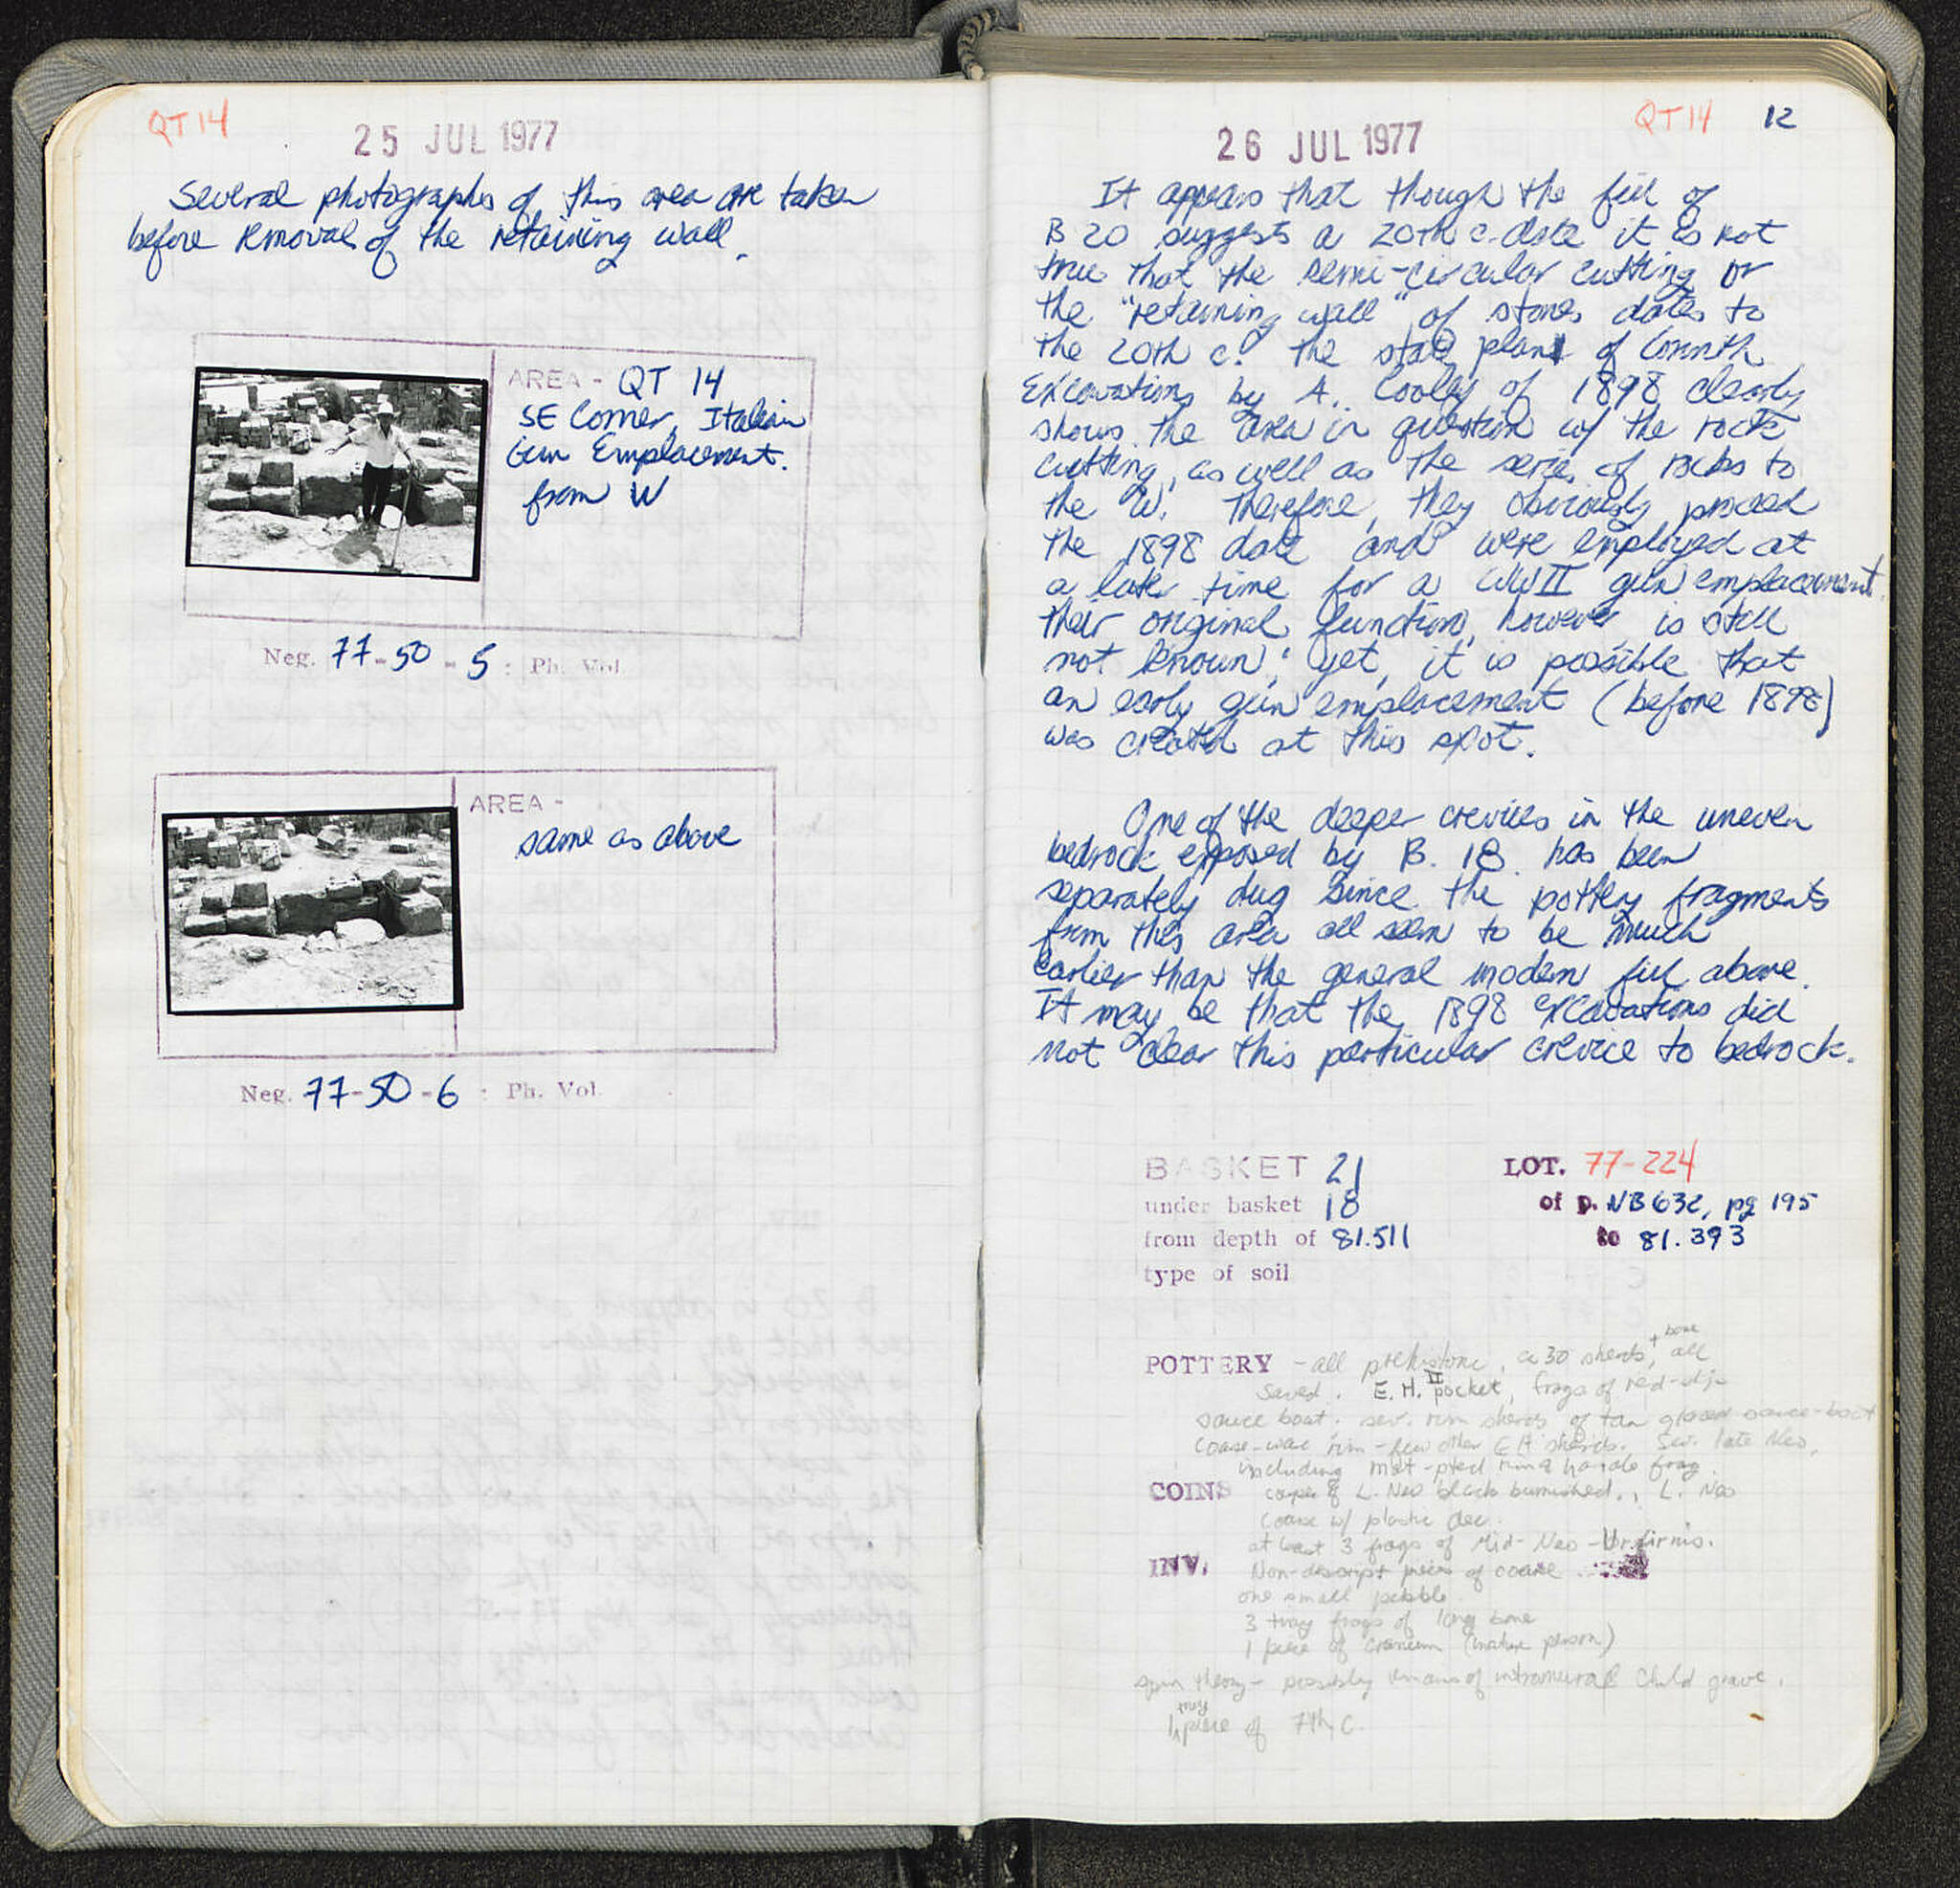 QT 14
25 JUL 1977
Several photographs of this area are taken
before removal of the retaining wall.
AREA - QT 14
SE Corner, Italian
Gun Emplacement.
from W
Neg. 77-50-5 : Ph. Vol.
AREA -
same as above
Neg. 77-50-6 : Ph. Vol.
QT 14 12
26 JUL 1977
It appears that though the fill of
B 20 suggests a 20th c. date it is not
true that the semi-circular cutting or
the "retaining wall" of stones dates to
the 20th c. The state plan of Corinth
Excavations by A. Cooley of 1898 clearly
shows the area in question w/ the rock
cutting, as well as the series of rocks to
the W. Therefore, they obviously preceed
the 1898 date and were employed at
a later time for a WWII gun emplacement.
Their original function, however, is still
not known; yet, it is possible that
an early gun emplacement (before 1898)
was created at this spot.
One of the deeper crevices in the uneven
bedrock exposed by B. 18 has been
separately dug since the pottery fragments
from this area all seem to be much
earlier than the general modern fill above.
It may be that the 1898 excavations did
not clear this particular crevice to bedrock.
BASKET 21 LOT. 77-224
under basket 18 of p. NB 632, pg 195
from depth of 81.511 to 81.393
type of soil
POTTERY - all prehistoric, ca 30 sherds, + bone all
saved. E.H. II pocket, frags of red-
sauce boat. sev. rim sherds of tan sauce-boat
coarse-ware rim - few other EH sherds. Sev. late Neo,
including mat-pted handle frag.
COINS couple of L. Neo black burnished., L. Neo
coarse w/ plastic dec.
at least 3 frags of Mid-Neo-Urfirnis.
INV. Non-descript pieces of coarse
one small pebble.
3 tiny frags of long bone
1 piece of cranium (mature person)
theory - possibly remains of intramural child grave.
1 tiny piece of 7th c.